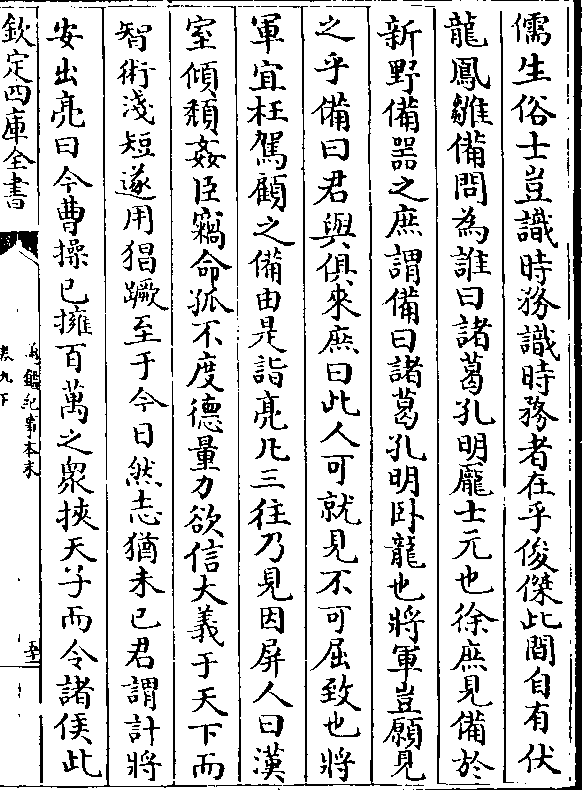 儒生俗士豈識時務識時務者在乎俊傑此間自有伏
龍鳳雛備問為誰曰諸葛孔明龐士元也徐庶見備於
新野備器之庶謂備曰諸葛孔明卧龍也將軍豈願見
之乎備曰君與俱來庶曰此人可就見不可屈致也將
軍宜枉駕顧之備由是詣亮凡三往乃見因屏人曰漢
室傾頽姦臣竊命孤不度德量力欲信大義于天下而
智術淺短遂用猖蹶至于今日然志猶未已君謂計將
安出亮曰今曹操已擁百萬之衆挾天子而令諸侯此
欽定四庫全書
鑑紀事本末
卷九下